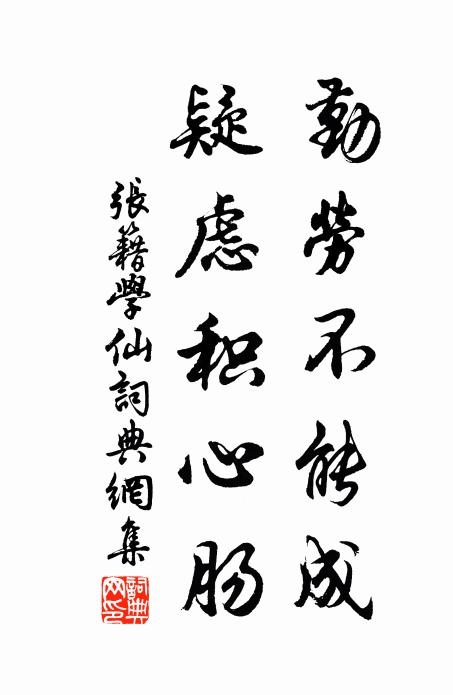 勤劳不能成
疑虑积心肠
張籍學仙詞典網集
詞典网印